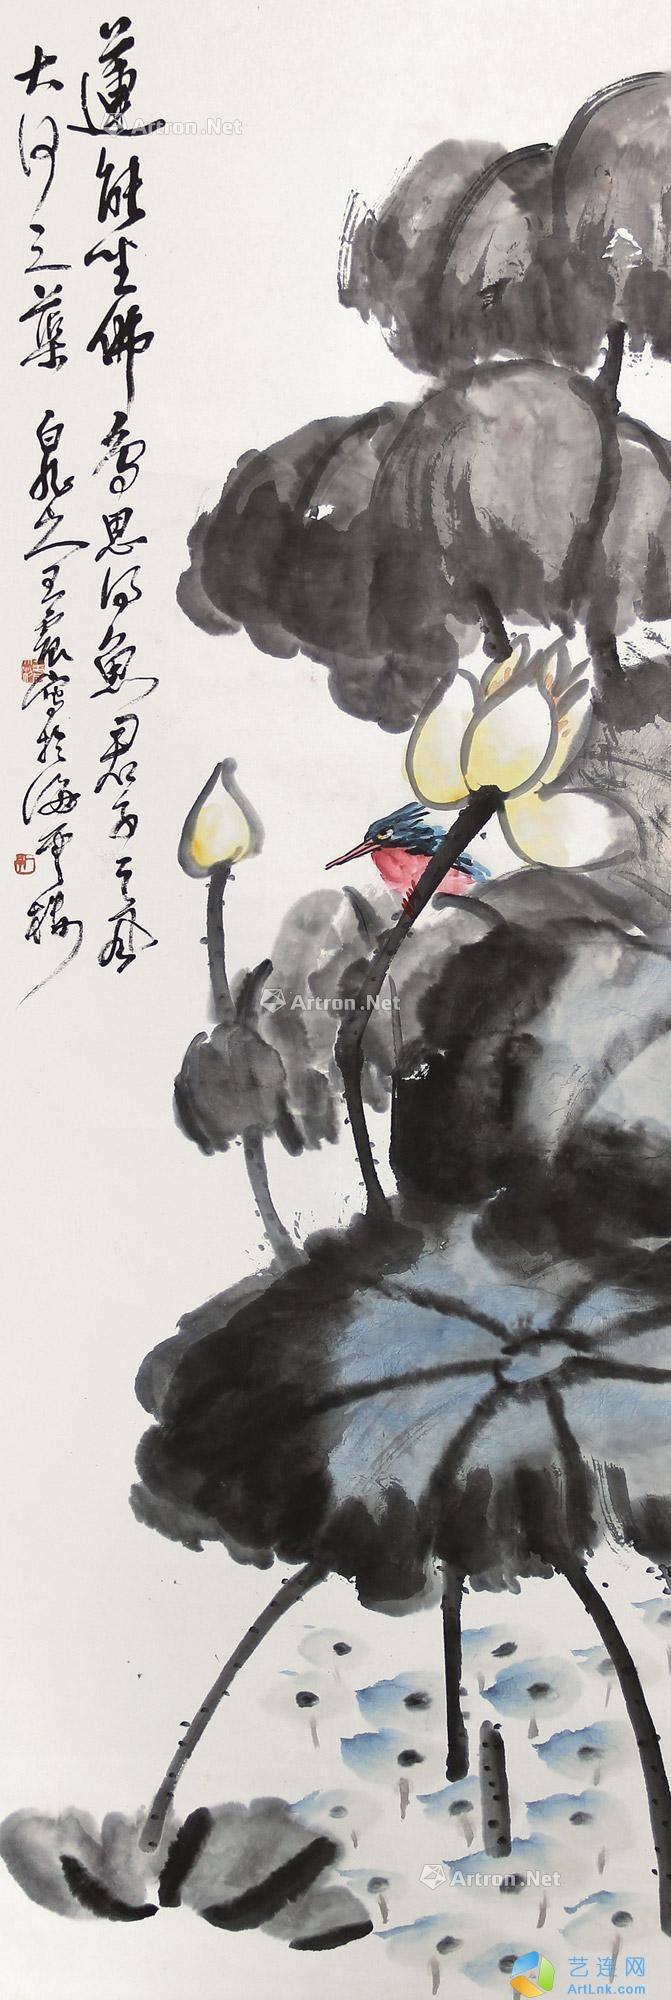 蓮能坐佛鳥思得魚君子之風
大何之藥 白龍山人王震寫於海雲樓
Artron.Net
Artron.Net
Artron.Net
艺连网
ArtLnk.com